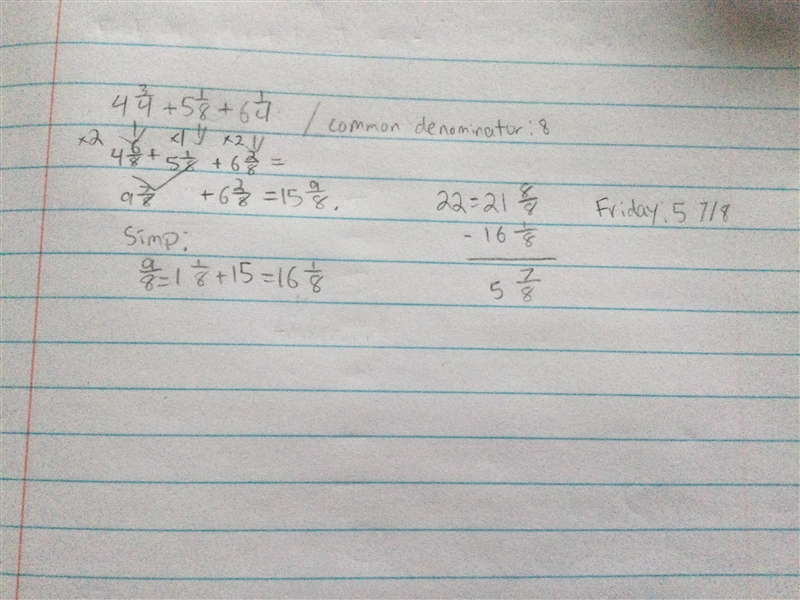 4 3/4 + 5 1/8 + 6 1/4 / common denominator: 8
×2 ×1 ×2
4 6/8 + 5 1/8 + 6 2/8 =
9 7/8 + 6 2/8 = 15 9/8.
Simp:
9/8 = 1 1/8 + 15 = 16 1/8
22 = 21 8/8
- 16 1/8
5 7/8
Friday, 5 7/8